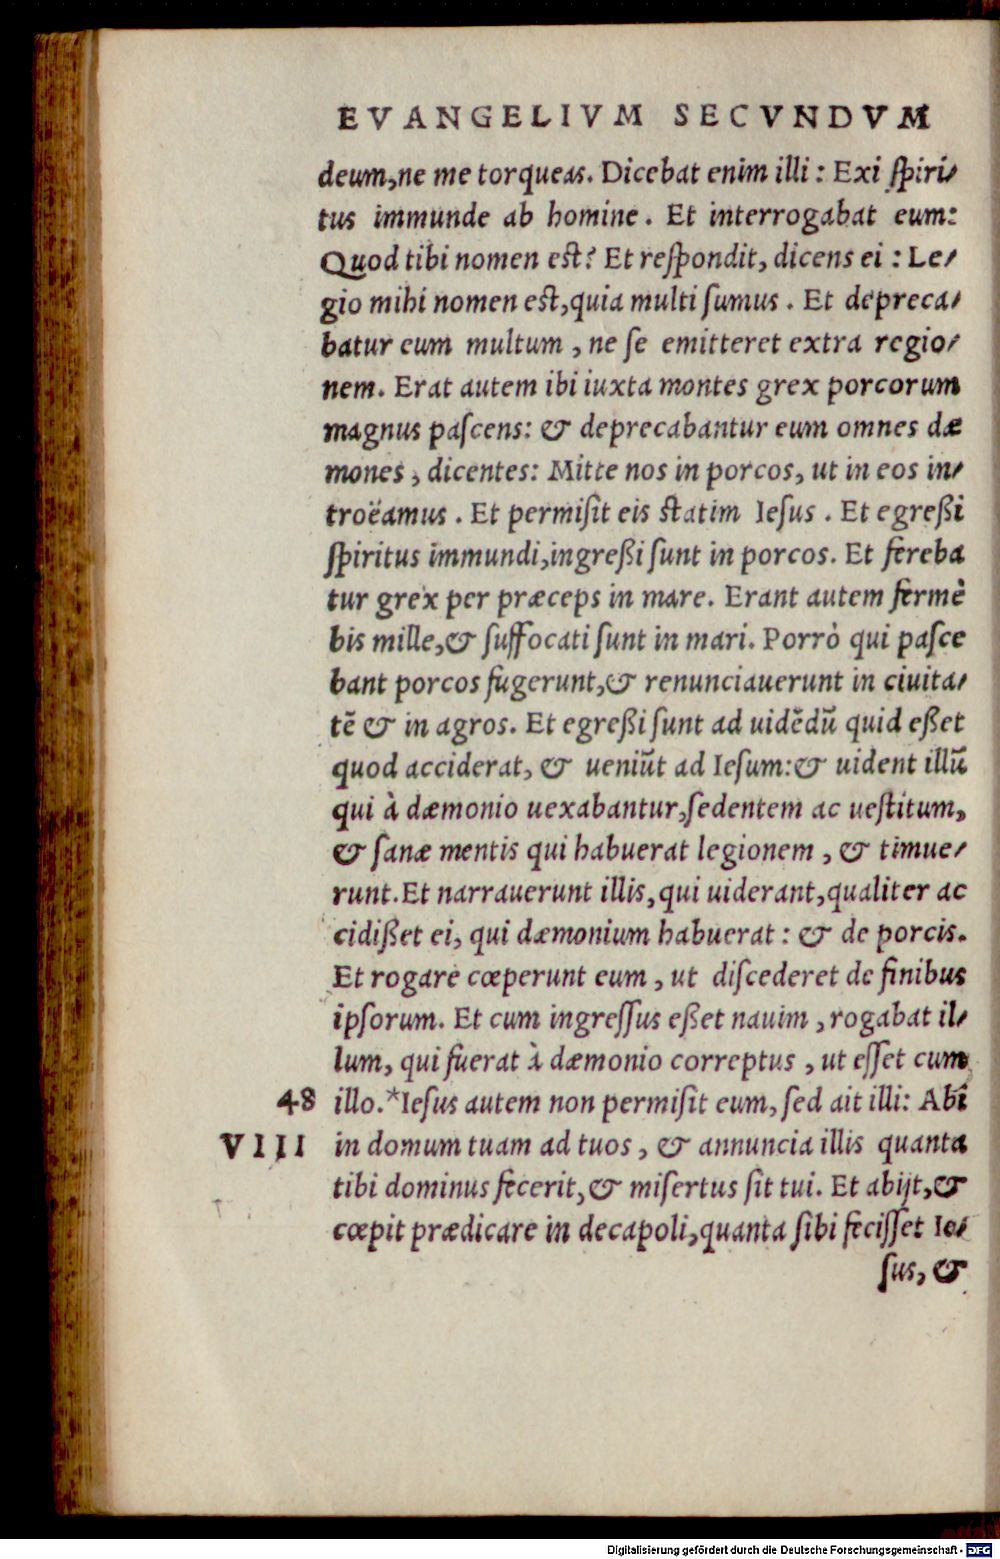 EVANGELIVM SECVNDVM
deum,ne me torqueas. Dicebat enim illi : Exi ſpiri⸗
tus immunde ab homine . Et interrogabat eum:
Quod tibi nomen eſt? Et reſpondit, dicens ei : Le⸗
gio mihi nomen eſt,quia multi ſumus . Et depreca⸗
batur eum multum , ne ſe emitteret extra regio⸗
nem. Erat autem ibi iuxta montes grex porcorum
magnus paſcens: & deprecabantur eum omnes dæ
mones , dicentes: Mitte nos in porcos, ut in eos in⸗
troëamus . Et permiſit eis ſtatim Ieſus . Et egreßi
ſpiritus immundi,ingreßi ſunt in porcos. Et fereba
tur grex per præceps in mare. Erant autem fermè
bis mille,& ſuffocati ſunt in mari. Porrò qui paſce
bant porcos fugerunt,& renunciauerunt in ciuita⸗
tē & in agros. Et egreßi ſunt ad uidēdū quid eßet
quod acciderat, & ueniūt ad Ieſum:& uident illū
qui à dæmonio uexabantur,ſedentem ac ueſtitum,
& ſanæ mentis qui habuerat legionem , & timue⸗
runt.Et narrauerunt illis,qui uiderant,qualiter ac
cidißet ei, qui dæmonium habuerat : & de porcis.
Et rogare cœperunt eum , ut diſcederet de finibus
ipſorum. Et cum ingreſſus eßet nauim , rogabat il⸗
lum, qui fuerat à dæmonio correptus , ut eſſet cum
48 illo.*Ieſus autem non permiſit eum, ſed ait illi: Abi
VIII in domum tuam ad tuos , & annuncia illis quanta
tibi dominus fecerit,& miſertus ſit tui. Et abijt,&
cœpit prædicare in decapoli,quanta ſibi feciſſet Ie⸗
ſus, &
Digitalisierung gefördert durch die Deutsche Forschungsgemeinschaft - DFG